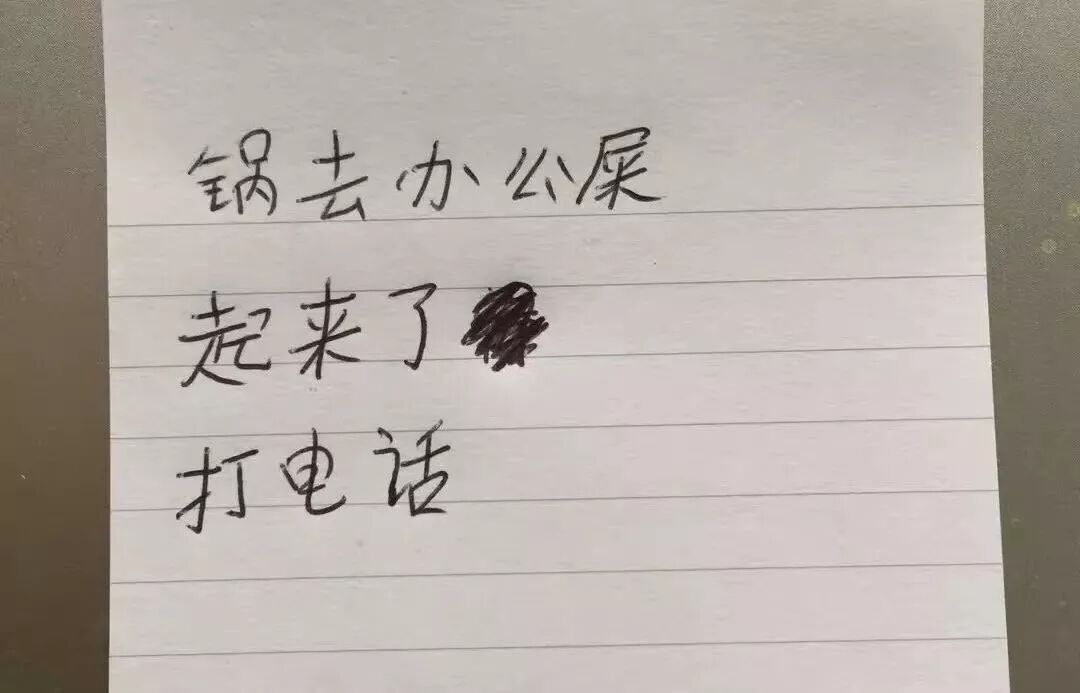 锅去办公屎
起来了
打电话